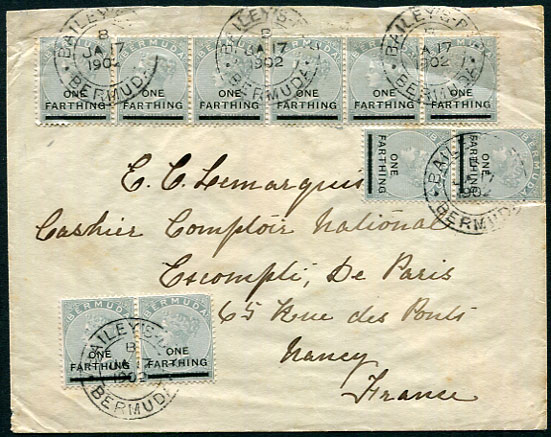 BAILEY'S
B
JA 17
1902
BERMUDA
BAILEY'S
B
JA 17
1902
BERMUDA
BAILEY'S
B
JA 17
1902
BERMUDA
BERMUDA BERMUDA BERMUDA BERMUDA BERMUDA BERMUDA
ONE ONE ONE ONE ONE ONE
FARTHING FARTHING FARTHING FARTHING FARTHING FARTHING
BERMUDA BERMUDA
ONE ONE
FARTHING FARTHING
BAILEY'S
JA 17
1902
BERMUDA
E. C. Lemarquis
Cashier Comptoir National
Escompti, De Paris
65 Rue des Ponts
Nancy
France
BERMUDA BERMUDA
ONE ONE
FARTHING FARTHING
BAILEY'S
B
JA 17
1902
BERMUDA